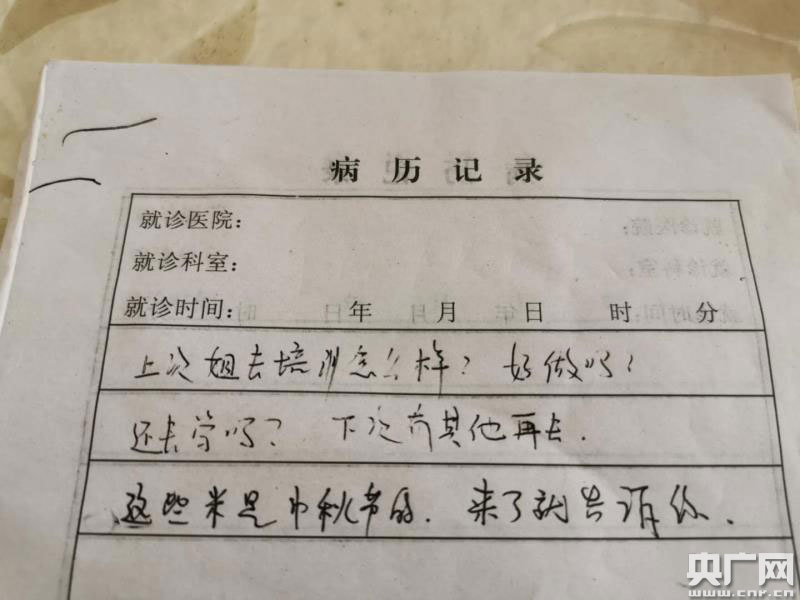 病历记录
就诊医院:
就诊科室:
就诊时间: 年 月 日 时 分
上次姐去培训怎么样? 好做吗?
还去学吗? 下次有其他再去.
这些米是中秋节的. 来了就告诉你.
央广网
www.cnr.cn